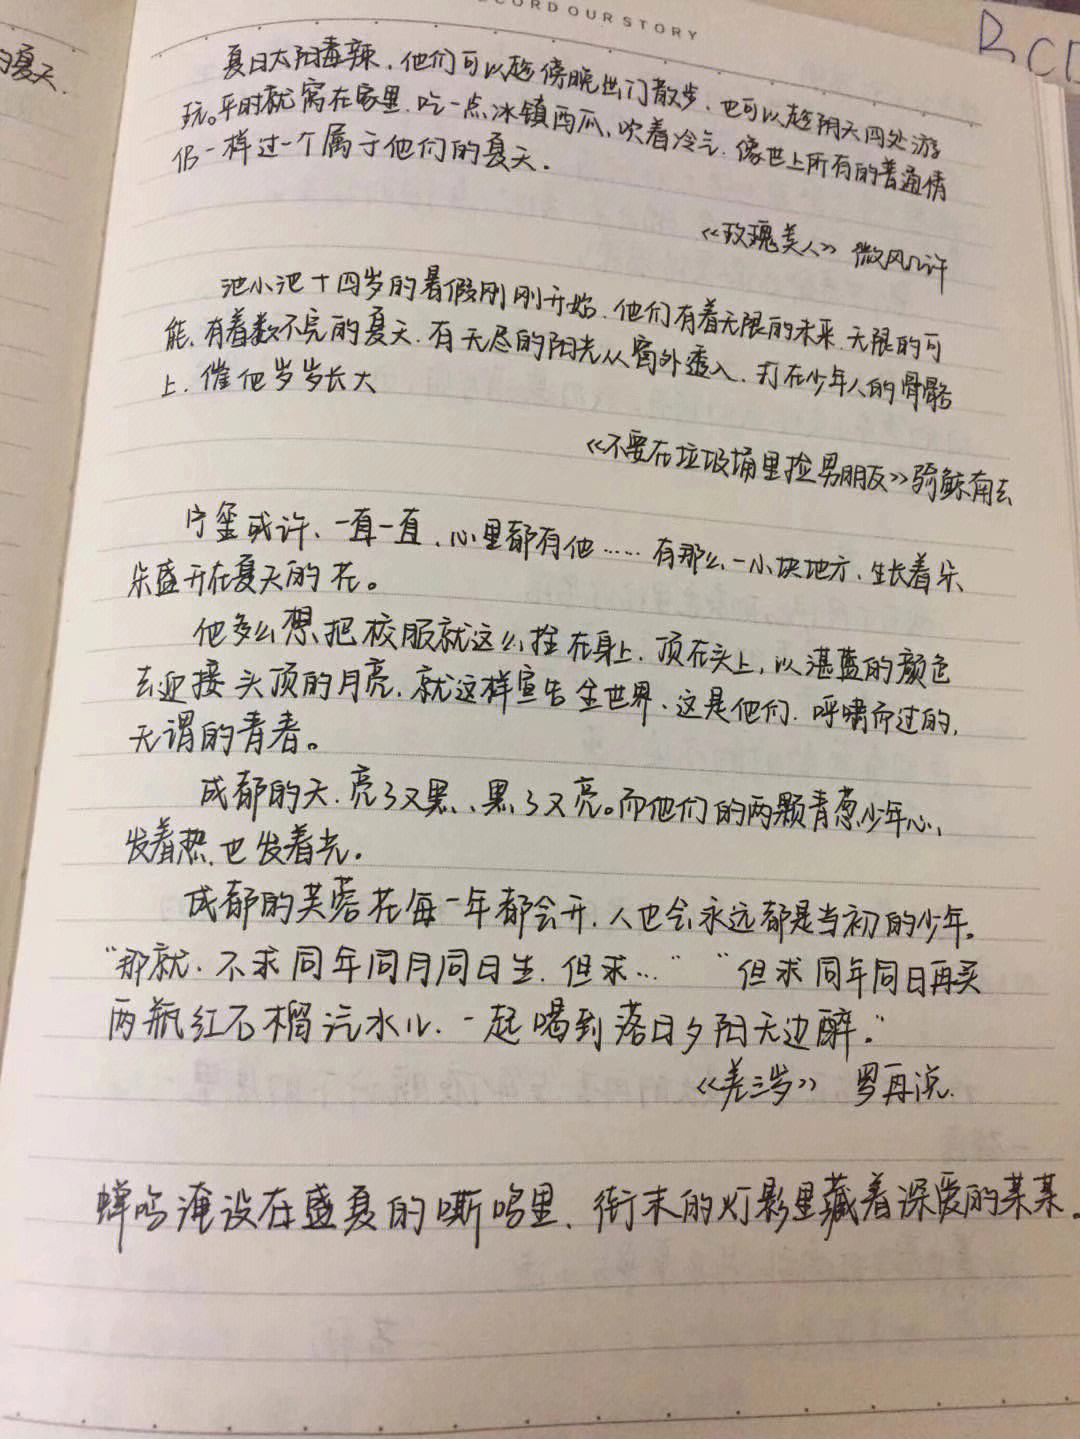 RECORD OUR STORY
BCD
的夏天.
夏日太阳毒辣,他们可以趁傍晚出门散步,也可以趁阴天四处游
玩。平时就窝在家里,吃一点冰镇西瓜、吹着冷气,像世上所有的普通情
侣一样过一个属于他们的夏天.
《玫瑰美人》 微风几许
池小池十四岁的暑假刚刚开始.他们有着无限的未来.无限的可
能,有着数不完的夏天.有无尽的阳光从窗外透入,打在少年人的骨骼
上,催他岁岁长大
《不要在垃圾桶里捡男朋友》骑鲸南去
宁玺或许、一直一直,心里都有他……有那么一小块地方,生长着朵
朵盛开在夏天的花。
他多么想把校服就这么拴在身上,顶在头上,以湛蓝的颜色
去迎接头顶的月亮,就这样宣告全世界、这是他们,呼啸而过的,
无谓的青春。
成都的天.亮了又黑、黑了又亮。而他们的两颗青葱少年心,
发着热,也发着光.
成都的芙蓉花每一年都会开,人也会永远都是当初的少年。
"那就.不求同年同月同日生.但求…" "但求同年同日再买
两瓶红石榴汽水儿.一起喝到落日夕阳无边醉."
《差三岁》 罗再说.
蝉鸣淹没在盛夏的嘶鸣里,街末的灯影里藏着深爱的某某.